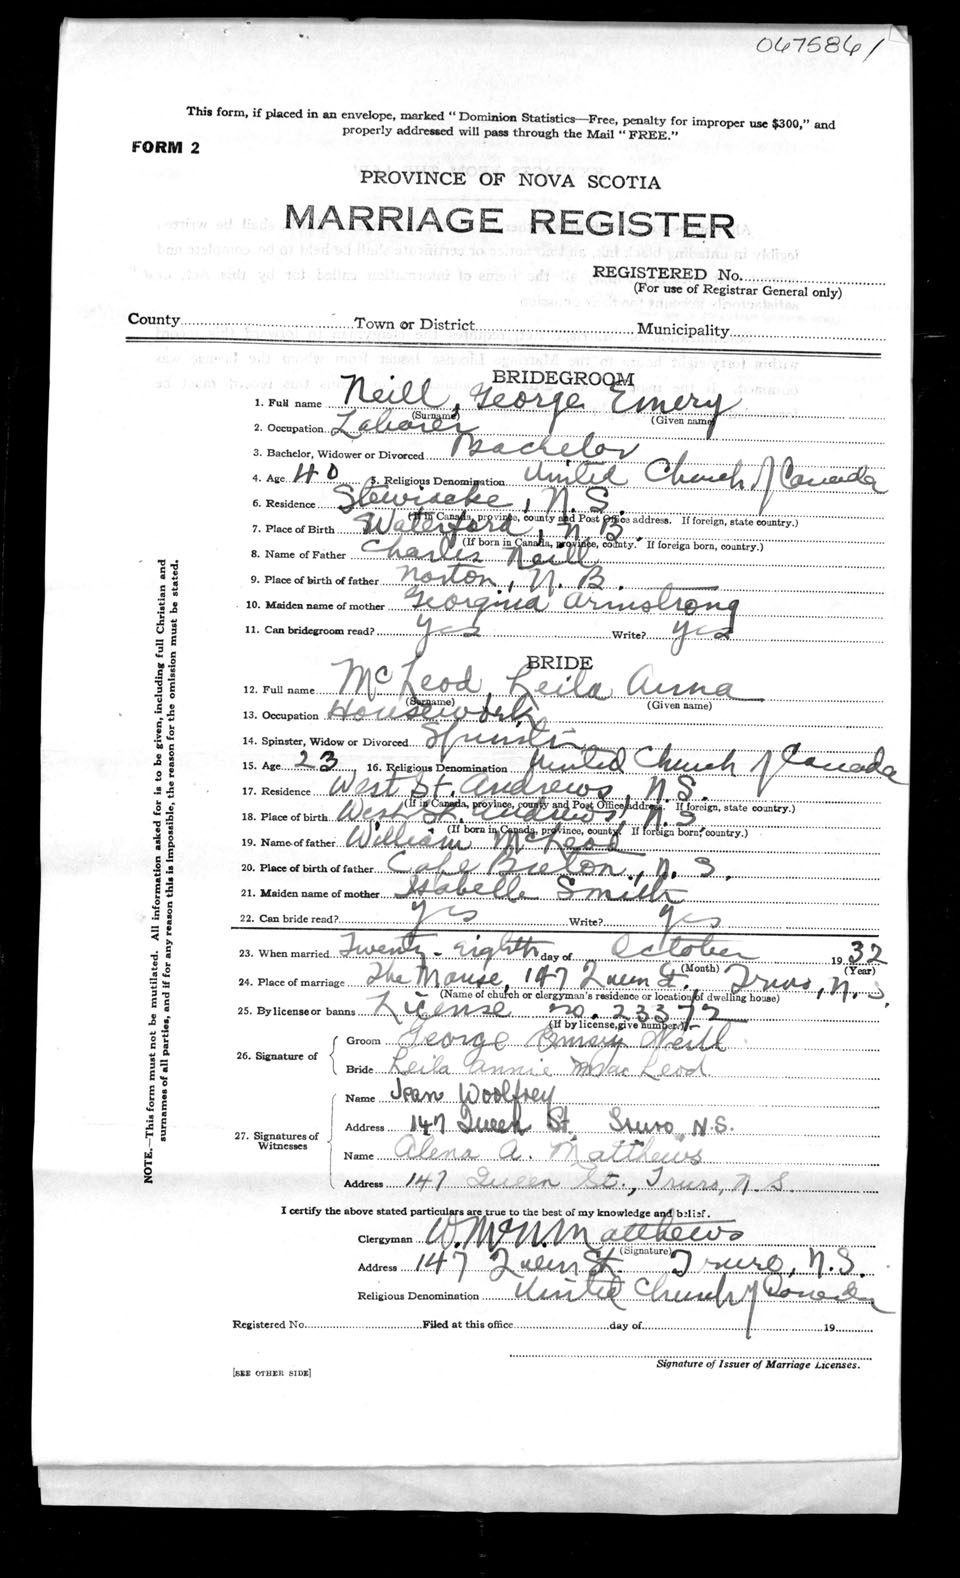 067586/
This form, if placed in an envelope, marked "Dominion Statistics—Free, penalty for improper use $300," and
properly addressed will pass through the Mail "FREE."
FORM 2
PROVINCE OF NOVA SCOTIA
MARRIAGE REGISTER
REGISTERED No.
(For use of Registrar General only)
County Town or District Municipality
BRIDEGROOM
1. Full name Neill, George Emery
(Surname) (Given name)
2. Occupation Laborer
3. Bachelor, Widower or Divorced Bachelor
4. Age 40 5. Religious Denomination United Church of Canada
6. Residence Stewiacke, N.S.
(If in Canada, province, county and Post Office address. If foreign, state country.)
7. Place of Birth Waterford, N.B.
(If born in Canada, province, county. If foreign born, country.)
8. Name of Father Charles Neill
9. Place of birth of father Norton, N.B.
10. Maiden name of mother Georginia Armstrong
11. Can bridegroom read? Yes Write? Yes
BRIDE
12. Full name McLeod, Leila Anna
(Surname) (Given name)
13. Occupation Housework
14. Spinster, Widow or Divorced Spinster
15. Age 23 16. Religious Denomination United Church of Canada
17. Residence West St. Andrews, N.S.
(If in Canada, province, county and Post Office Address. If foreign, state country.)
18. Place of birth West St. Andrews, N.S
(If born in Canada, province, county. If foreign born, country.)
19. Name of father William McLeod
20. Place of birth of father Cape Breton, N.S.
21. Maiden name of mother Isabelle Smith
22. Can bride read? Yes Write? Yes
23. When married Twenty-eighth day of October 1932
(Month) (Year)
24. Place of marriage The Manse, 147 Queen St. Truro, N.S.
(Name of church or clergyman's residence or location of dwelling house)
25. By license or banns License no. 23372
(If by license, give number)
26. Signature of Groom George Emery Neill
Bride Leila Annie MacLeod
27. Signatures of Witnesses
Name Jean Woolfrey
Address 147 Queen St. Truro, N.S.
Name Alena A. Matthews
Address 147 Queen St., Truro, N.S.
I certify the above stated particulars are true to the best of my knowledge and belief.
Clergyman W. McN. Matthews
(Signature)
Address 147 Queen St. Truro, N.S.
Religious Denomination United Church of Canada
Registered No. Filed at this office day of 19
Signature of Issuer of Marriage Licenses.
[SEE OTHER SIDE]
NOTE.—This form must not be mutilated. All information asked for is to be given, including full Christian and
surnames of all parties, and if for any reason this is impossible, the reason for the omission must be stated.